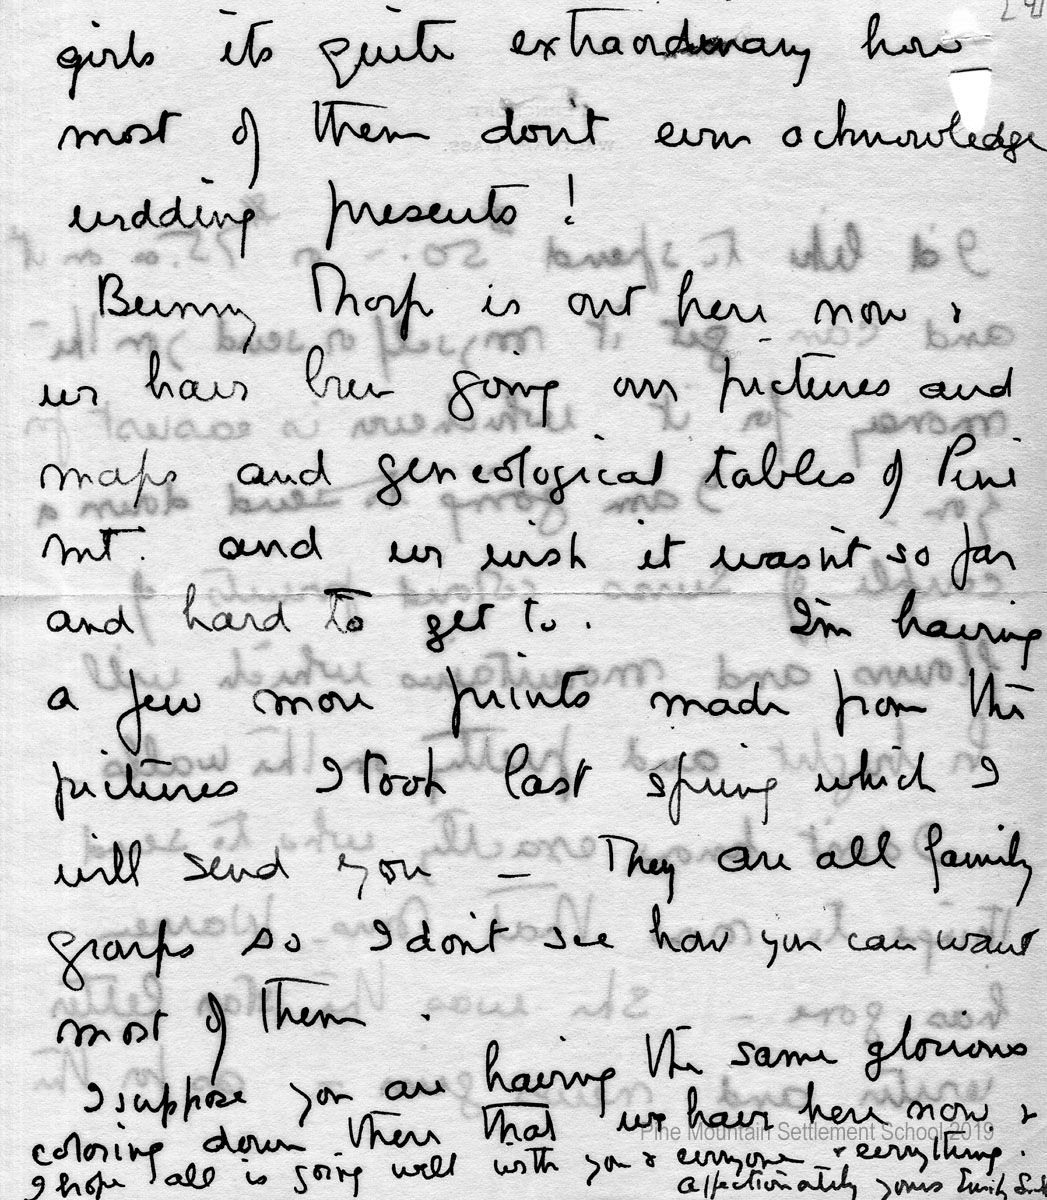 girls its quite extraordinary how
most of them don't even acknowledge
wedding presents!
Bunny Thorp is out here now &
we have been going over pictures and
maps and geneological tables of Pine
Mt. and we wish it wasn't so far
and hard to get to. I'm having
a few more prints made from the
pictures I took last spring which I
will send you — They are all family
groups so I don't see how you can want
most of them.
I suppose you are having the same glorious
coloring down there that we have here now &
I hope all is going well with you & everyone & everything.
affectionately yours Emily
Pine Mountain Settlement School 2019